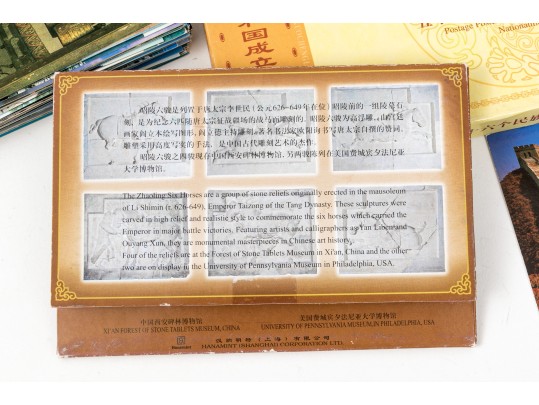 国成立
Postage
昭陵六骏是列置于唐太宗李世民(公元626-649年在位)昭陵前的一组陵墓石
刻,是为纪念六匹随唐太宗征战疆场的战马而雕刻的。昭陵六骏为高浮雕,由宫廷
画家阎立本绘写图形,阎立德主持雕刻,著名书法家欧阳询书写唐太宗自撰的赞词,
雕塑采用高度写实的手法,是中国古代雕刻艺术的杰作。
昭陵六骏之四骏现存中国西安碑林博物馆,另两骏陈列在美国费城宾夕法尼亚
大学博物馆。
The Zhaoling Six Horses are a group of stone reliefs originally erected in the mausoleum
of Li Shimin (r. 626-649), Emperor Taizong of the Tang Dynasty. These sculptures were
carved in high relief and realistic style to commemorate the six horses which carried the
Emperor in major battle victories. Featuring artists and calligraphers as Yan Liben and
Ouyang Xun, they are monumental masterpieces in Chinese art history.
Four of the reliefs are at the Forest of Stone Tablets Museum in Xi'an, China and the other
two are on display in the University of Pennsylvania Museum in Philadelphia, USA.
中国西安碑林博物馆
美国费城宾夕法尼亚大学博物馆
XI'AN FOREST OF STONE TABLETS MUSEUM, CHINA
UNIVERSITY OF PENNSYLVANIA MUSEUM IN PHILADELPHIA, USA
(上海)有限公司
HANAMINT (SHANGHAI) CORPORATION LTD.